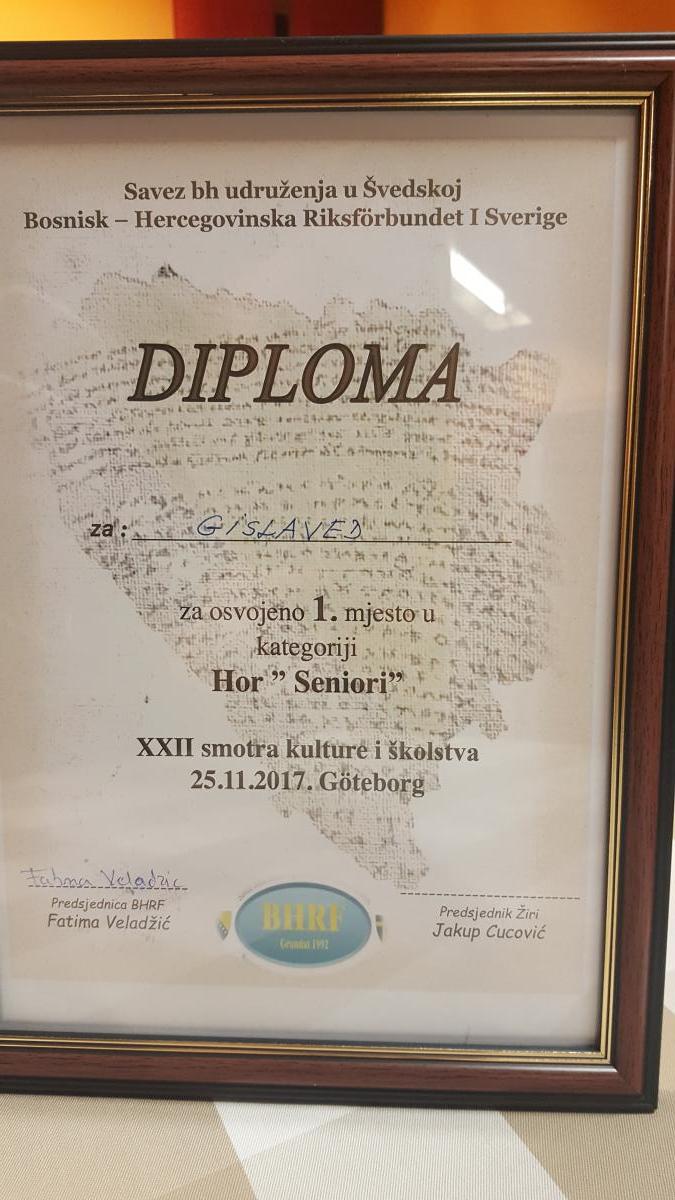 Savez bh udruženja u Švedskoj
Bosnisk – Hercegovinska Riksförbundet I Sverige
DIPLOMA
za : GISLAVED
za osvojeno 1. mjesto u
kategoriji
Hor ” Seniori”
XXII smotra kulture i školstva
25.11.2017. Göteborg
Fatima Veladžic
Predsjednica BHRF
Fatima Veladžić
BHRF
Grundat 1992
Predsjednik Žiri
Jakup Cucović